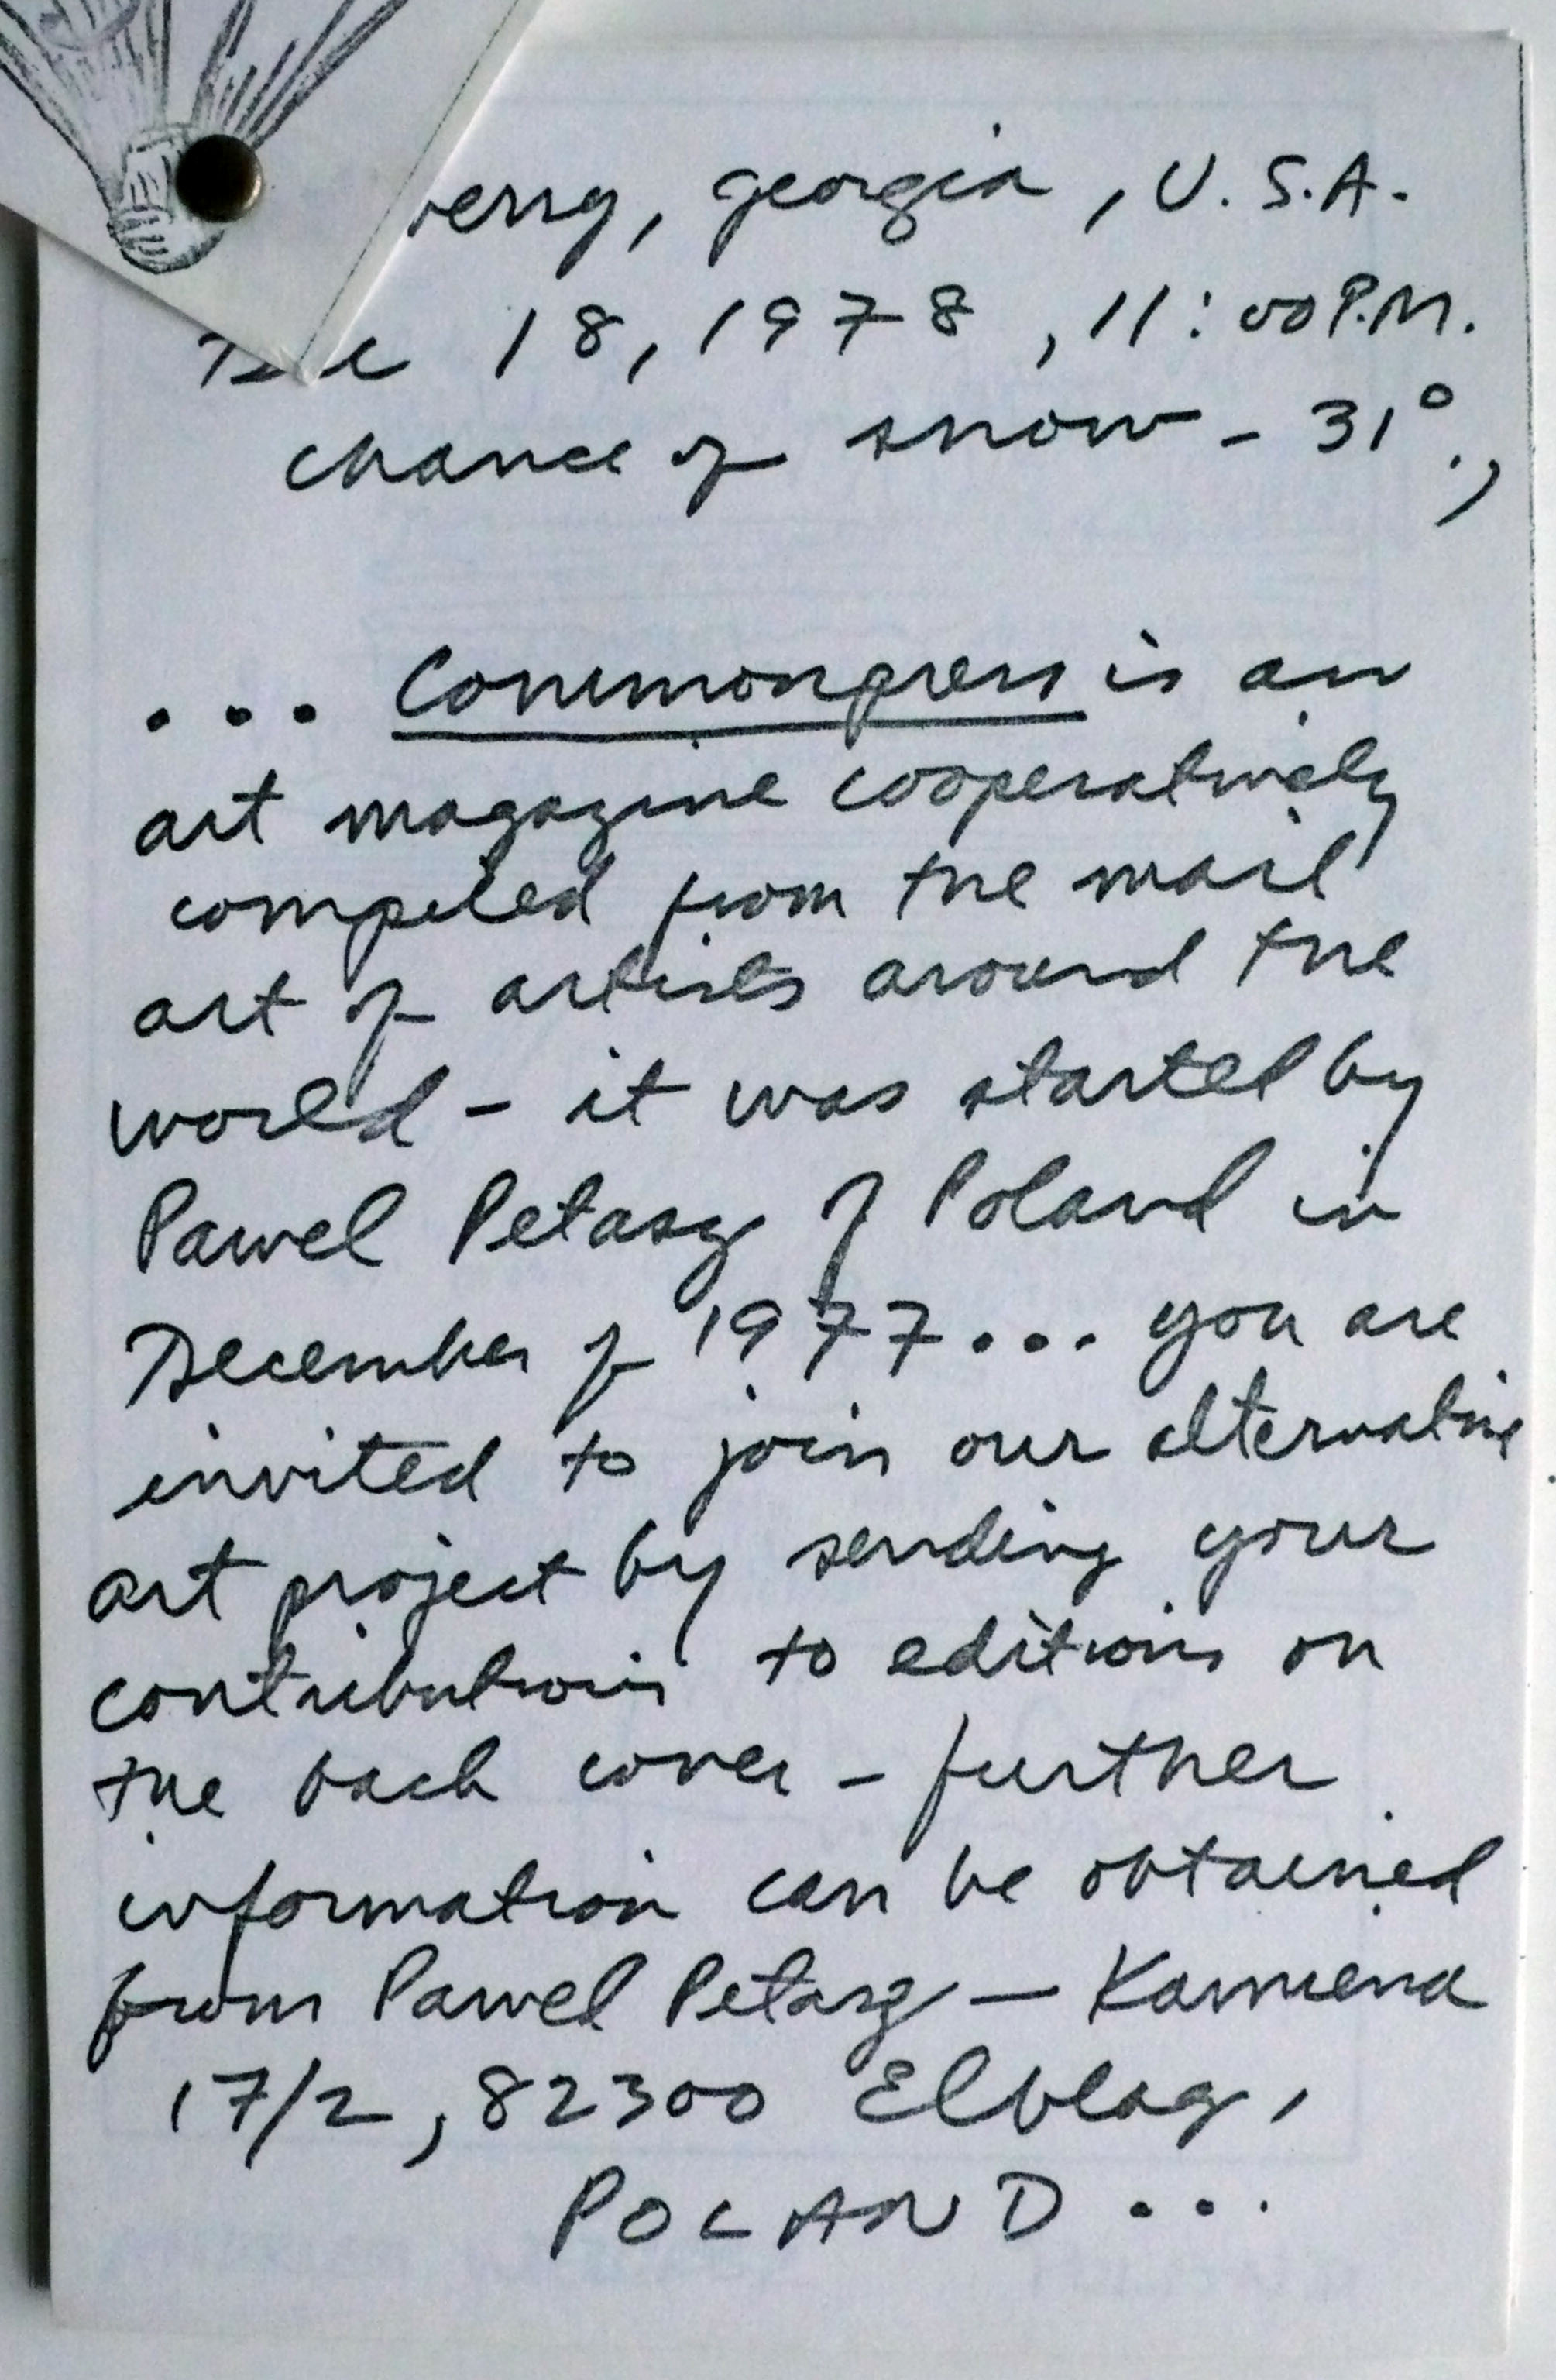 erry, georgia, U.S.A.
Dec 18, 1978, 11:00 P.M.
chance of snow - 31°.,
... Commonpress is an
art magazine cooperatively
compiled from the mail
art of artists around the
world - it was started by
Pawel Petasz of Poland in
December of 1977... you are
invited to join our alternative
art project by sending your
contributions to editions on
the back cover - further
information can be obtained
from Pawel Petasz — Kamiena
17/2, 82300 Elblag,
POLAND...